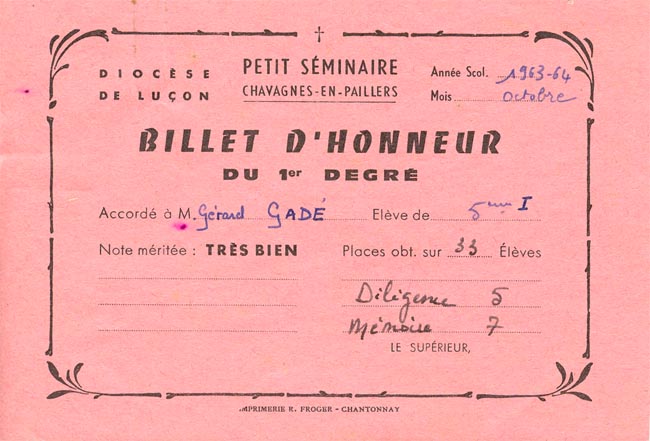 DIOCÈSE
DE LUÇON
PETIT SÉMINAIRE
CHAVAGNES-EN-PAILLERS
Année Scol. 1963-64
Mois octobre
BILLET D'HONNEUR
DU 1er DEGRÉ
Accordé à M. Gérard GADÉ Elève de 5ème I
Note méritée : TRÈS BIEN Places obt. sur 33 Élèves
Diligence 5
Mémoire 7
LE SUPÉRIEUR,
IMPRIMERIE R. FROGER - CHANTONNAY